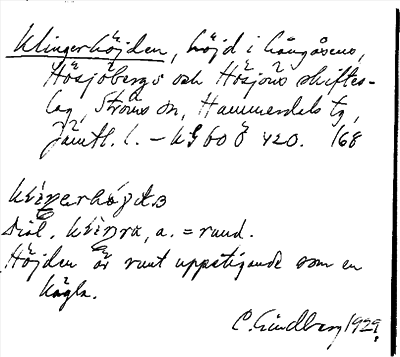 Klingerhöjden, höjd i Långåsens,
Hösjöbergs och Hösjöns skiftes-
lag, Ströms sn, Hammerdals tg,
Jämtl. l. – KS 60 Ö 420. 168
Dial. a. = rund.
Höjden är runt uppstigande som en
kägla.
C. Lindberg 1929.